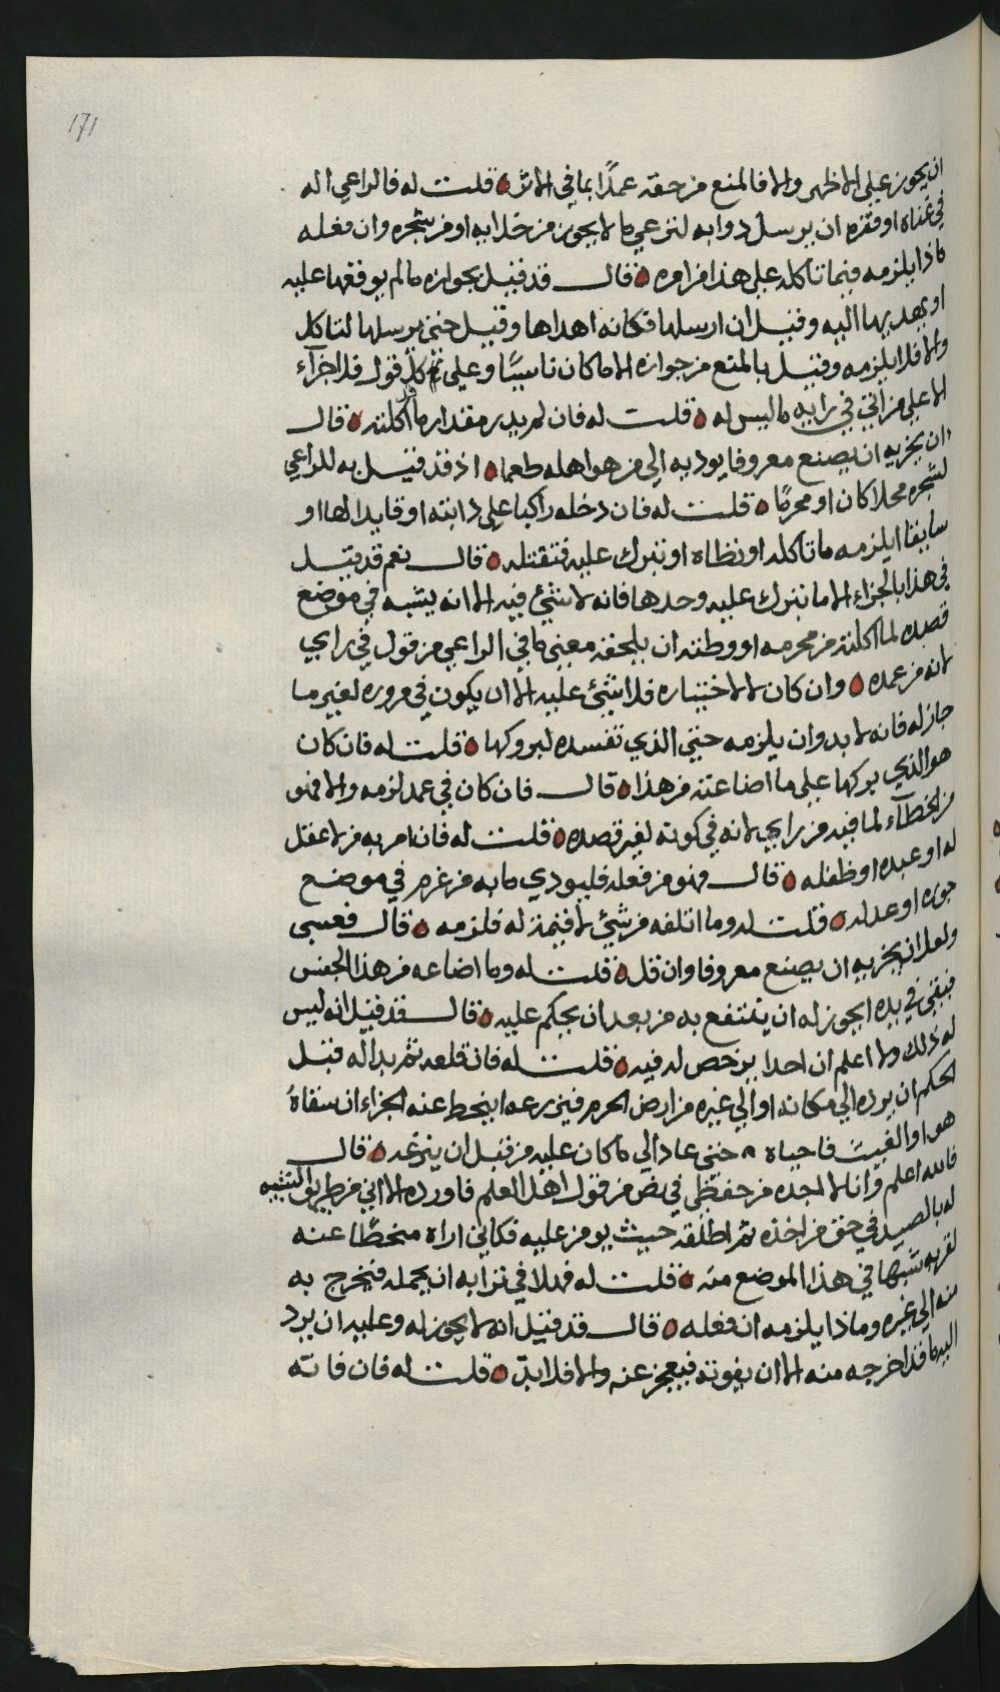 171
ان يجوز على الاظهر والا فالمنع من حقه عمدا بما في الاثر ه قلت له فالراعي اله
في غناه او فقره ان يرسل دوابه لترعي ما لا يجوز من خلايه او من شجره وان فعله
ماذا يلزمه فيما تاكله على هذا من امره ه قال قد قيل بجوازه ما لم يوقفها عليه
او يهد بها اليه وقيل ان ارسلها فكانه اهداها وقيل حتى يرسلها لتاكل
والا فلا يلزمه وقيل بالمنع من جوازه الا ما كان ناسيا وعلى كل قول فلا جزآء
الا على من اتى في رايه ما ليس له ه قلت له فان لم يدر مقدار ما اكلته ه قال
ان يجزيه ان يصنع معروفا يوديه الى من هو اهله طعما ه اذ قد قيل به للراعي
لشجره محلا كان او محرما ه قلت له فان دخله راكبا على دابته او قايدا لها او
سايقا ايلزمه ما تاكله او تطاه او تبرك عليه فتقتله ه قال نعم قد قيل
في هذا بالجزاء الا ما تبرك عليه وحدها فانه لا شئ فيه الا انه يشبه في موضع
قصده لما اكلته من محرمه او وطته ان يلحقه معنى ما في الراعي من قول في رايي
لانه من عمده ه وان كان لا لاختياره فلا شئ عليه الا ان يكون في مروره لغير ما
جاز له فانه لا بد وان يلزمه حتى الذي تفسده لبروكها ه قلت له فان كان
هو الذي بركها على ما اضاعته من هذا ه قال فان كان في عمد لزمه والا فهو
من الخطآء لما فيه من رايي لانه في كونه لغير قصده ه قلت له فان امر به من لا عقل
له او عبده او طفله ه قال فهو من فعله فليودي ما به من غرم في موضع
جوره او عدله ه قلت له وما اتلفه من شئ لا قيمة له فلزمه ه قال فعسى
ولعل ان يجزيه ان يصنع معروفا وان قل ه قلت له وما اضاعه من هذا الجنس
فبقى في يده ايجوز له ان ينتفع به من بعد ان يحكم عليه ه قال قد قيل انه ليس
له ذلك ولا اعلم ان احدا يرخص له فيه ه قلت له فان قلعه ثم بدا له قبل
الحكم ان يرده الى مكانه او الى غيره من ارض الحرم فيزرعه اينحط عنه الجزاء ان سقاه
هو او الغيث فاحياه ٨ حتى عاد الى ما كان عليه من قبل ان ينزعه ه قال
فالله اعلم وانا لا اجده من حفظي في نص من قول اهل العلم فاورده الا اني من طريق التشبيه
له بالصيد في حق من اخذه ثم اطلقه حيث يومن عليه فكاني اراه منحطا عنه
لقربه شبها في هذا الموضع منه ه قلت له فهلا في ترابه ان يحمله فيخرج به
منه الى غيره وماذا يلزمه ان فعله ه قال قد قيل انه لا يجوز له وعليه ان يرد
اليه ما قد اخرجه منه الا ان يفوته فيعجز عنه والا فلا بد ه قلت له فان فاته